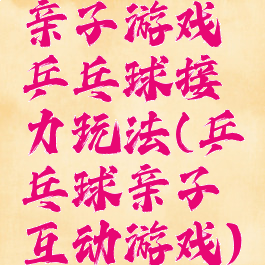 亲子游戏
乒乓球接
力玩法(乒
乓球亲子
互动游戏)